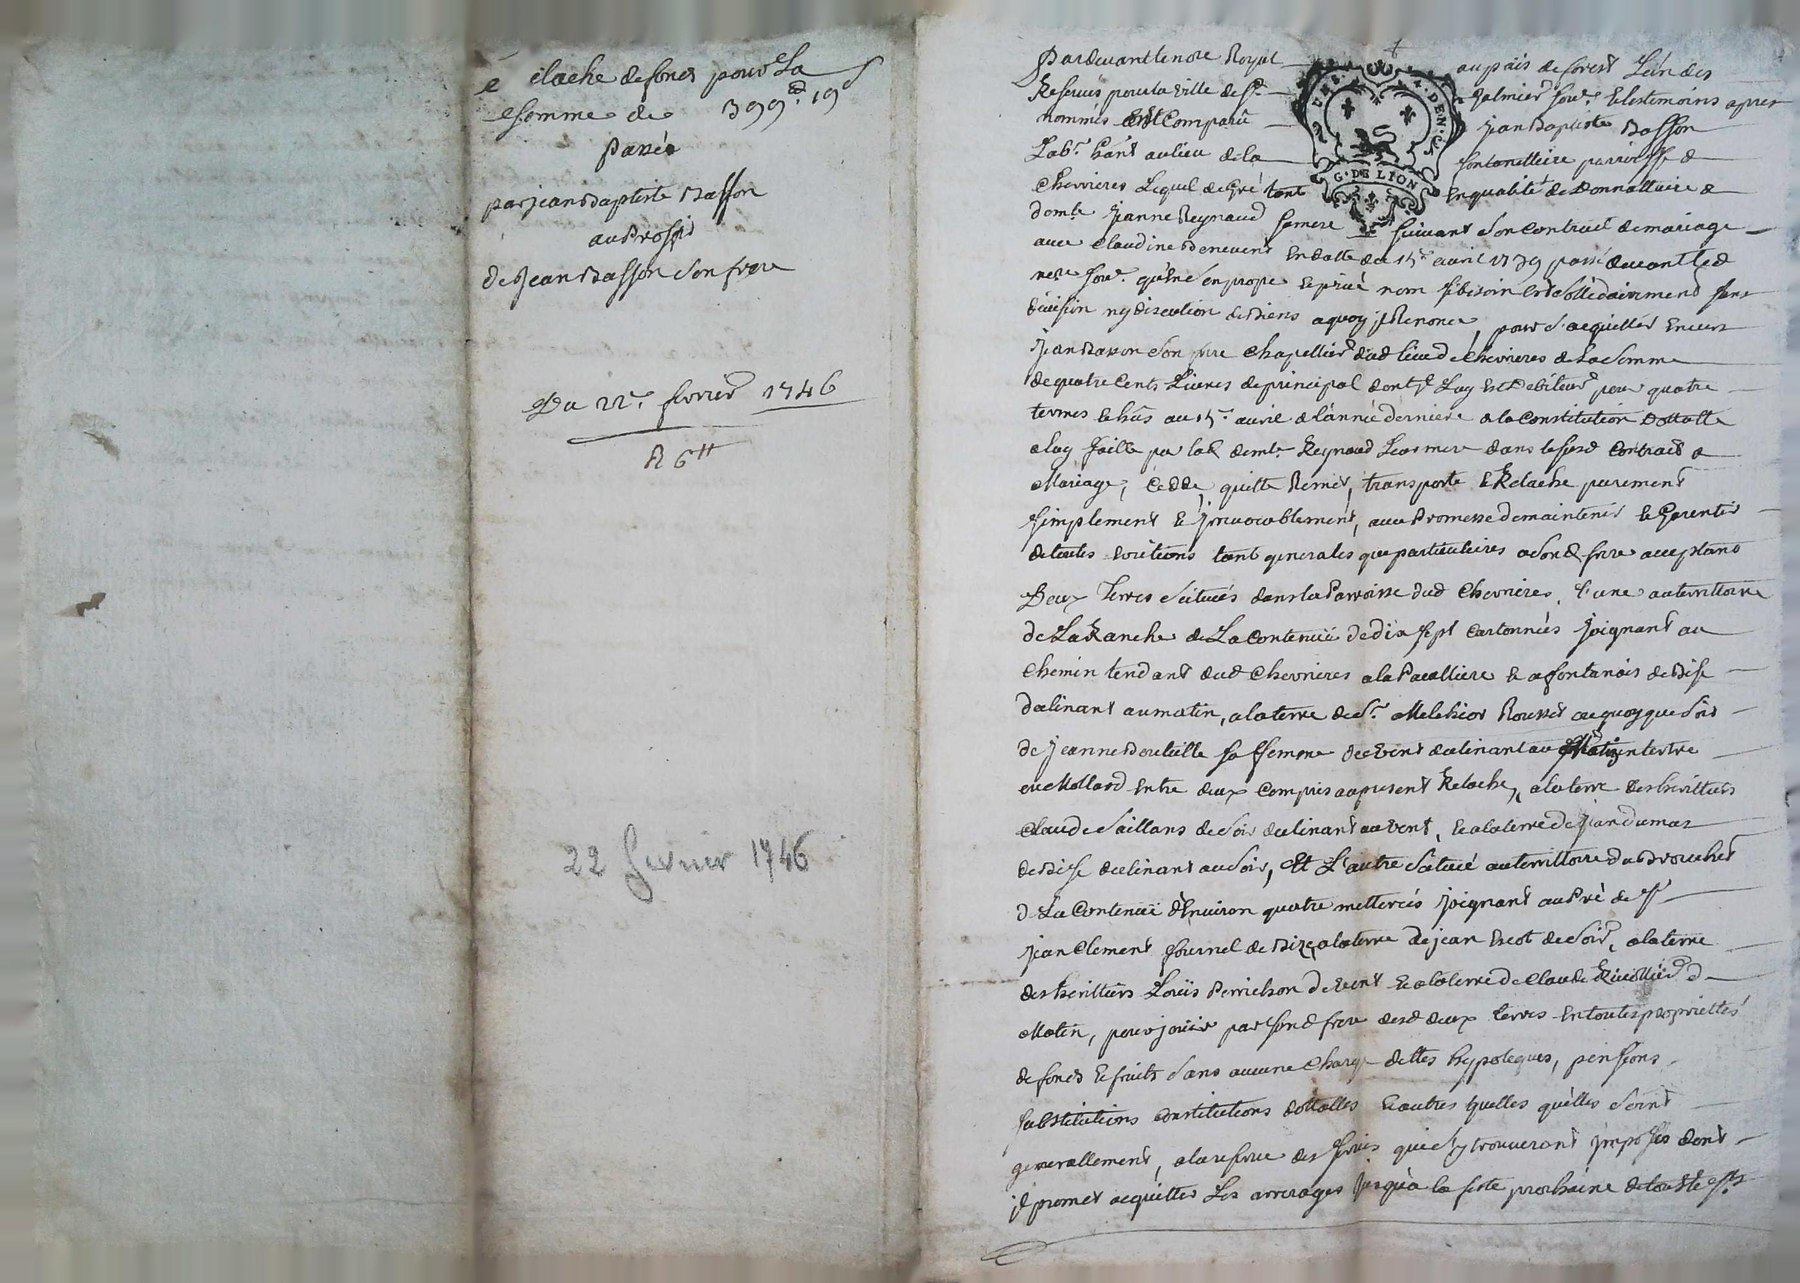 Relache de fonds pour La
Somme de 399ᵈ 19ˢ
Passée
par jean Baptiste Basson
au Proffit
de Jean Basson Son frere
Du 22ᵉ fevrier 1746
R 6ᵗᵗ
22 fevrier 1746
Pardevant le notre Royal au païs de forest L'un des
Reservés pour la ville de Sᵗ Galmier Souᵉ. & les temoins apres
nommés est Comparû jean Baptiste Basson
Labʳ. hant au lieu de la fontanelliere parroisse de
Chevrieres Lequel de Gré tant En qualité de Donnattaire de
domᵗᵉ jeanne Reynaud sa mere Suivant Son contract de mariage
avec Claudine Benevent En datte du 15ᵉ avril 1739 passé devant led
noʳᵉ Souᵉ. qu'En Son propre & privé nom si besoin Est Sollidairement sans
division ny discution de Biens a quoy il Renonce, pour S'acquitter Envers
jean Basson Son frere Chapellier dud lieu de Chevrieres de la Somme
de quatre Cents Livres de principal dont il Luy Est Debiteur pour quatre
termes Echûs au 15ᵉ avril de l'année derniere de la Constitution Dottalle
a luy faitte par lad demᵗᵉ Reynaud Leur mere dans le susd Contract de
Mariage, Cedde, quitte Remet, transporte & Relache purement
simplement & jrrevocablement, avec Promesse de maintenir & Garentir
de toutes Evictions tant generales que particulieres a Sond frere acceptant
Deux Terres Scituées dans la Parroisse dud Chevrieres, l'une au territtoire
de La Ranche de La Contenuë de dix sept Cartonnées joignant au
Chemin tendant dud Chevrieres a la & a fontanéis de Bise
declinant au matin, a la terre de Sʳ. Melchior Rousset ou quoy que Soit
de jeanne sa femme de Vent declinant au Matin tertre
ou Mollard Entre deux Compris au present Relache, a la terre des heritiers
Claude Saillans de Soir declinant au vent, & a la terre de jean dumas
de Bise declinant au Soir, Et L'autre Scitué au territtoire du
de La Contenuë d'Environ quatre metterées joignant au Pré de Sʳ
jean Clement fournel de Bize, a la terre de jean Escot de Soir, a la terre
des heritiers Loüis Perrichon de vent & a la terre de Claude Rivollier de
Matin, pour joüir par sond frere desd deux terres En toutes proprietés
de fonds & fruits Sans aucune Charge dettes hypoteques, pensions
substitutions constitutions dottalles & autres quelles qu'elles Soint
generallement, a la reserve des Servis qui S'y trouveront imposés dont
il promet acquitter Les arrerages jusqu'a la feste prochaine de toutte Sᵗˢ
GEN. DE LION